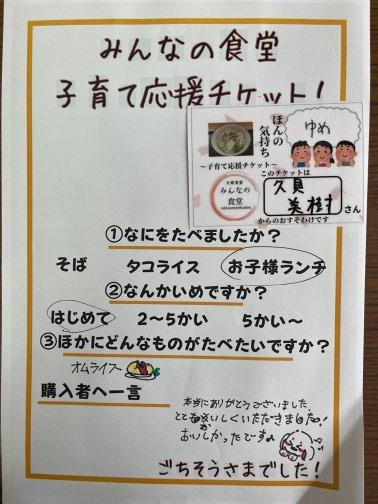 みんなの食堂
子育て応援チケット!
ほんの
気持ち
ゆめ
〜子育て応援チケット〜
このチケットは
みんなの
食堂
久貝
美樹
さん
からのおすそわけです
①なにをたべましたか?
そば タコライス お子様ランチ
②なんかいめですか?
はじめて 2〜5かい 5かい〜
③ほかにどんなものがたべたいですか?
オムライス
購入者へ一言
本当にありがとうございました。
おいしかったです
ごちそうさまでした!